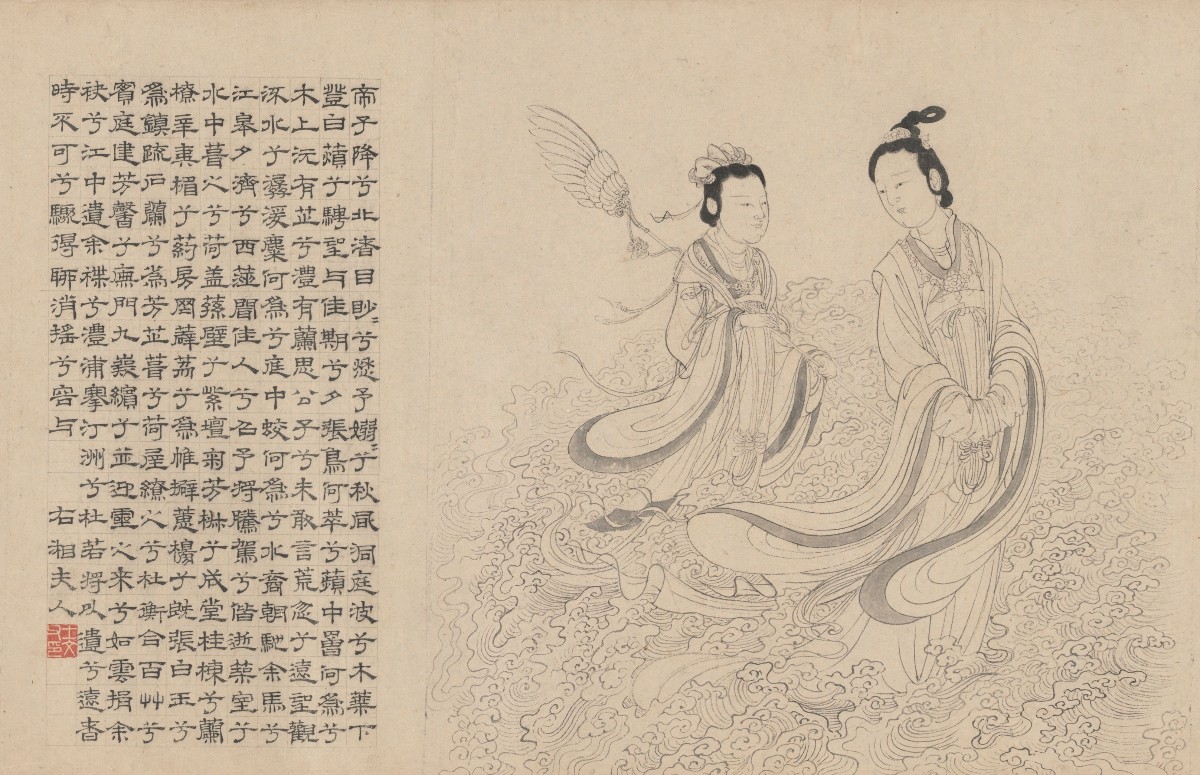 帝子降兮北渚目眇=兮愁予嫋=兮秋風洞庭波兮木葉下
登白薠兮騁望与佳期兮夕張鳥何萃兮蘋中罾何為兮
木上沅有芷兮澧有蘭思公子兮未敢言荒忽兮遠望觀
流水兮潺湲麋何為兮庭中蛟何為兮水裔朝馳余馬兮
江皋夕濟兮西澨聞佳人兮召予將騰駕兮偕逝築室兮
水中葺之兮荷盖蓀壁兮紫壇匊芳椒兮成堂桂棟兮蘭
橑辛夷楣兮葯房罔薜荔兮為帷擗蕙櫋兮既張白玉兮
為鎮疏石蘭兮為芳芷葺兮荷屋繚之兮杜衡合百艸兮
實庭建芳馨兮廡門九嶷繽兮並迎靈之來兮如雲捐余
袂兮江中遺余褋兮澧浦搴汀洲兮杜若將以遺兮遠者
時不可兮驟得聊消搖兮容与 右湘夫人